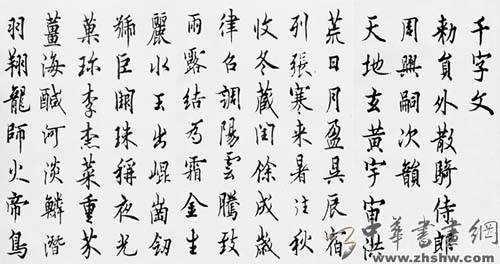 千字文
勅員外散騎侍郎
周興嗣次韻
天地玄黄宇宙洪
荒日月盈昃辰宿
列張寒来暑往秋
收冬藏閏餘成歲
律召調陽雲騰致
雨露結為霜金生
麗水玉出崐崗釰
號巨闕珠稱夜光
菓珍李柰菜重芥
薑海醎河淡鱗潛
羽翔龍師火帝鳥
中華書畫網
www.zhshw.com